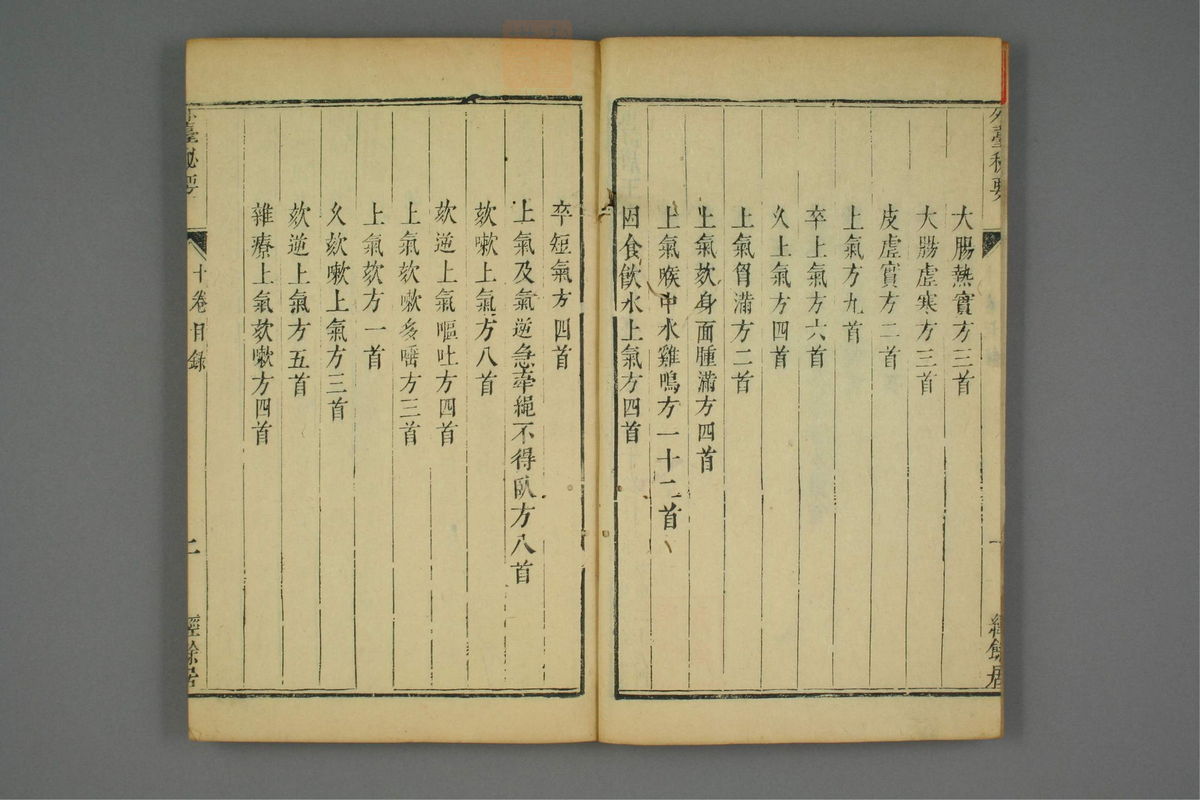 外臺秘要
一
經餘居
大腸熱實方三首
大腸虛寒方三首
皮虛實方二首
上氣方九首
卒上氣方六首
久上氣方四首
上氣胷滿方二首
上氣欬身面腫滿方四首
上氣喉中水雞鳴方一十二首
因食飲水上氣方四首
卒短氣方四首
上氣及氣逆急牽繩不得臥方八首
欬嗽上氣方八首
欬逆上氣嘔吐方四首
上氣欬嗽多唾方三首
上氣欬方一首
久欬嗽上氣方三首
欬逆上氣方五首
雜療上氣欬嗽方四首
外臺秘要
十卷目錄
二
經餘居